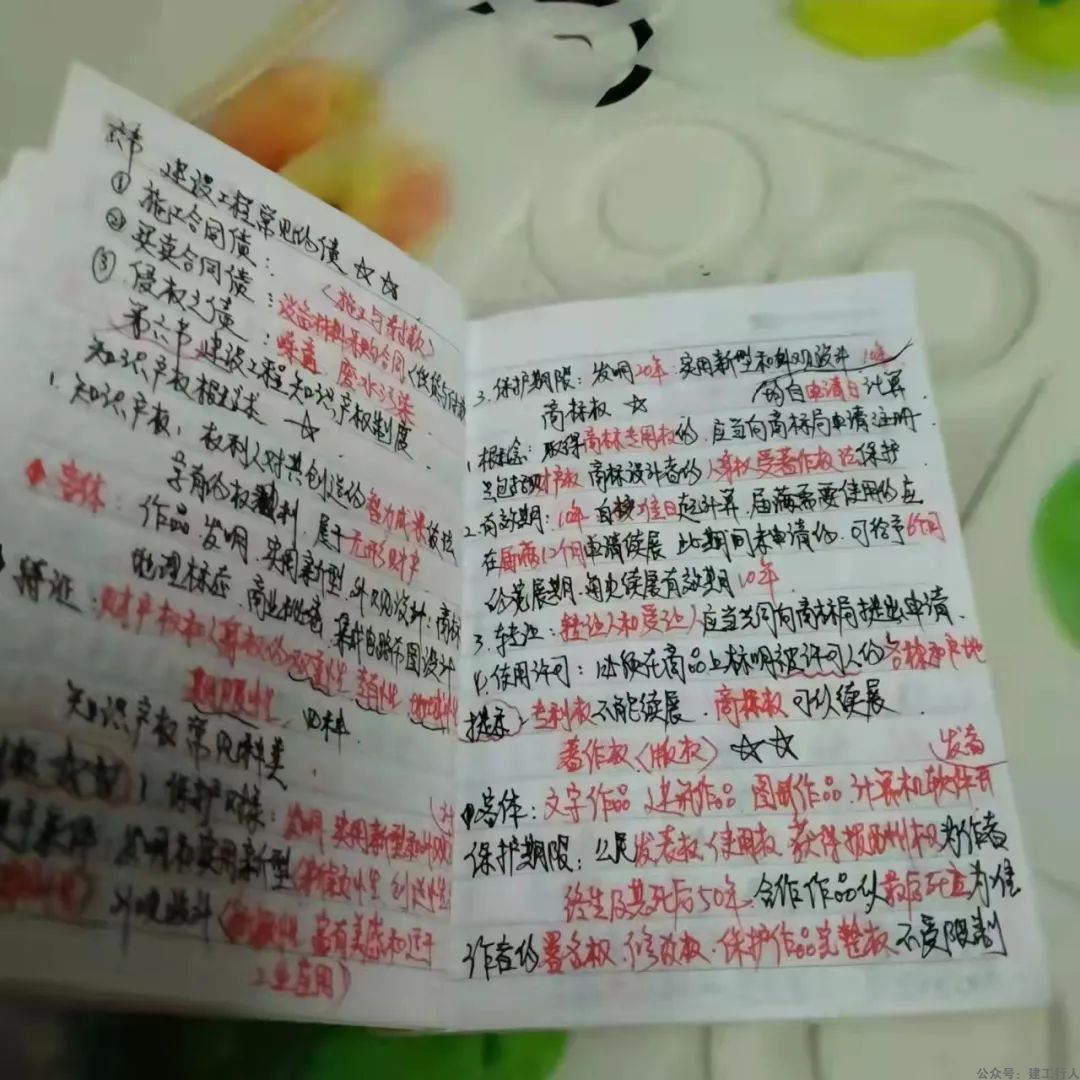 六节 建设工程常见的债 ☆☆
① 施工合同债：〈施工与付款〉
② 买卖合同债：设备材料采购合同
③ 侵权之债：噪音、废水污染
第六节 建设工程知识产权制度
知识产权概述 ☆
1. 知识产权：权利人对其创造的智力成果依法
享有的权利．属于无形财产
客体：作品．发明．实用新型．外观设计；商标
地理标志．商业机密．集成电路布图设计
特征：财产权和人身权的双重性 专有性 地域性
期限性．四种
知识产权常见种类
☆☆ 1. 保护对象：发明 实用新型和外观
发明和实用新型 创造性
外观设计 富有美感和适于
工业应用)
3. 保护期限：发明20年．实用新型和外观设计 10年
均自申请日计算
商标权 ☆
1. 概念：取得商标专用权的．应当向商标局申请注册
只包括财产权 商标设计者的人身权受著作权法保护
2. 有效期：10年 自核准日起计算．届满需要使用的应
在届满12个月申请续展 此期间未申请的．可给予6个月
的宽展期．每次续展有效期10年
3. 转让：转让人和受让人应当共同向商标局提出申请．
4. 使用许可：必须在商品上标明被许可人的名称和产地
提示：专利权不能续展．商标权可以续展
著作权〈版权〉☆☆
客体：文字作品．建筑作品．图形作品．计算机软件
保护期限：公民发表权、使用权．获得报酬权为作者
终生及其死后50年．合作作品以最后死亡为准
作者的署名权．修改权．保护作品完整权 不受限制
公众号：建工行人